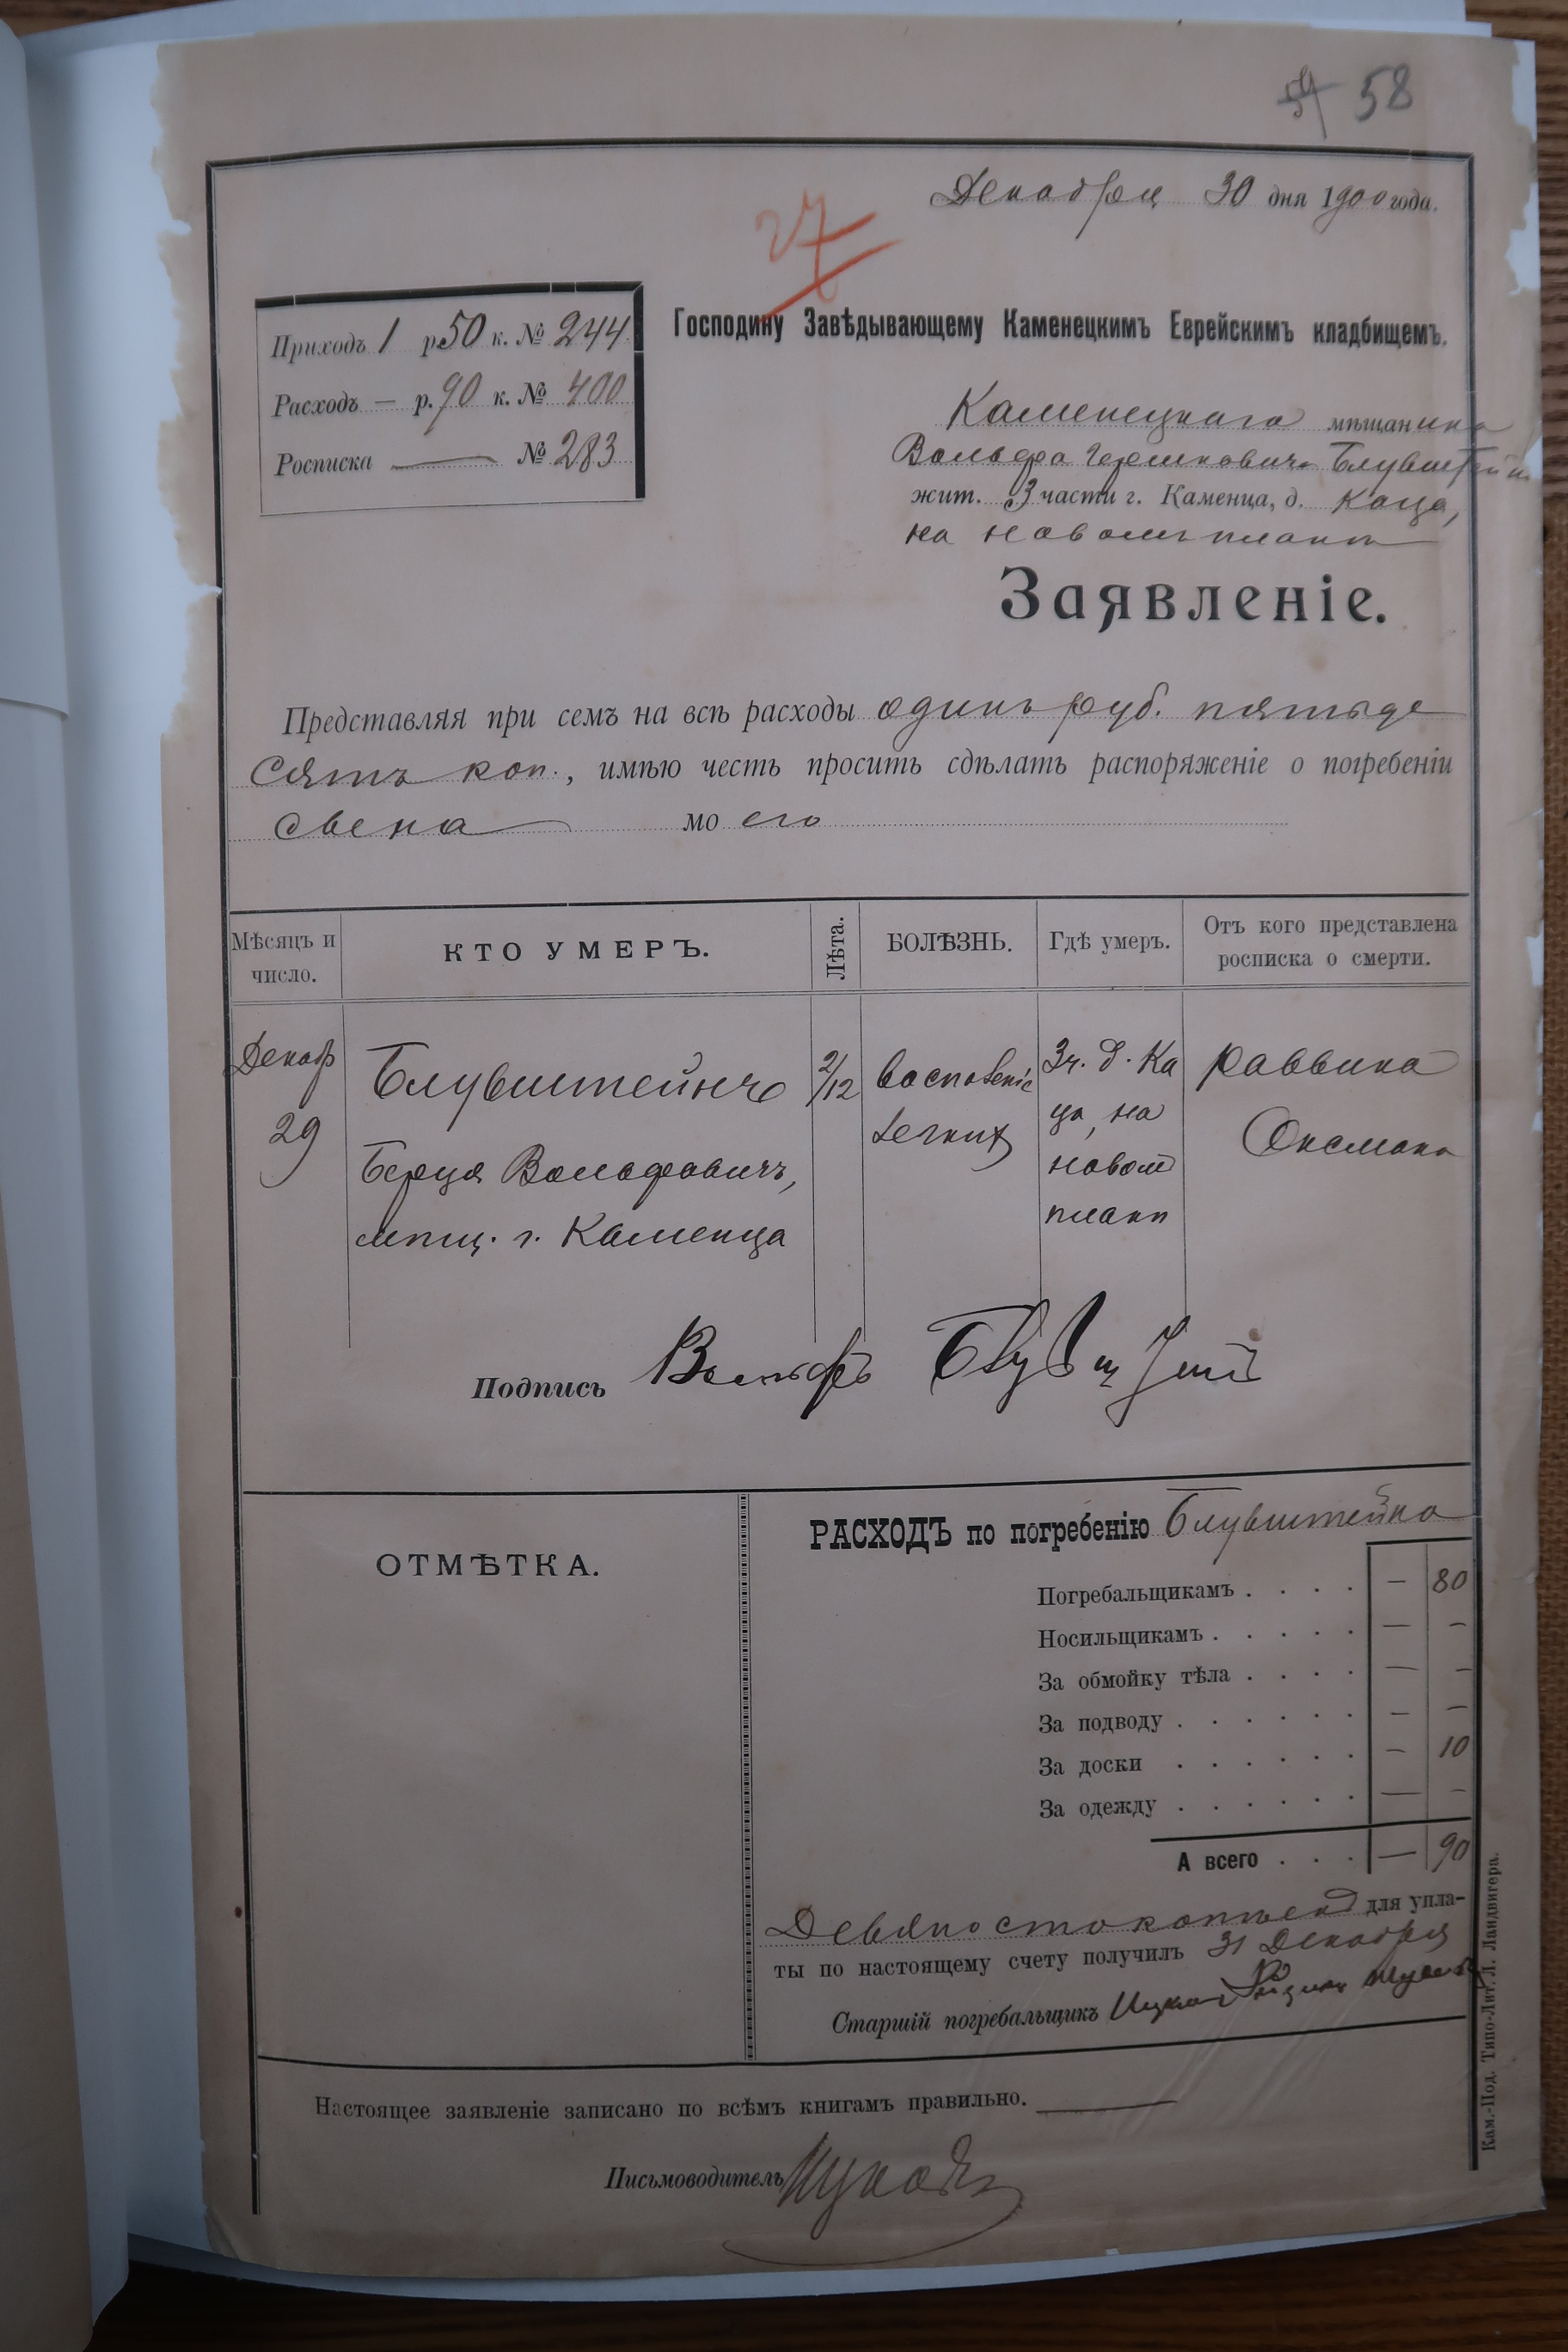 58
Декабря 30 дня 1900 года.
27
Приходъ 1 р. 50 к. № 244
Расходъ — р. 90 к. № 400
Росписка — № 283
Господину Завѣдывающему Каменецкимъ Еврейскимъ кладбищемъ.
Каменецкаго мѣщанина
Вольфа Гершковича Блувштейн
жит. 3 части г. Каменца, д. Каца,
на новомъ планѣ
Заявленіе.
Представляя при семъ на всѣ расходы одинъ руб. пятьде
сятъ коп., имѣю честь просить сдѣлать распоряженіе о погребеніи
сына моего
Мѣсяцъ и число. КТО УМЕРЪ. Лѣта. БОЛѢЗНЬ. Гдѣ умеръ. Отъ кого представлена росписка о смерти.
Декаб 29 Блувштейнъ Берця Вольфовичъ, мѣщ. г. Каменца 2/12 воспаленіе легких 3ч. д. Каца, на новом планѣ раввина Оксмана
Подпись Вольфъ
ОТМѢТКА.
РАСХОДЪ по погребенію Блувштейна
Погребальщикамъ . . . . — 80
Носильщикамъ . . . . . — —
За обмойку тѣла . . . . — —
За подводу . . . . . . — —
За доски . . . . . . — 10
За одежду . . . . . . — —
А всего . . . — 90
Девяносто копѣекъ для упла-
ты по настоящему счету получилъ 31 Декабря
Старшій погребальщикъ Ицко
Настоящее заявленіе записано по всѣмъ книгамъ правильно.
Письмоводитель
Кам.-Под. Типо-Лит. Л. Ландвигера.